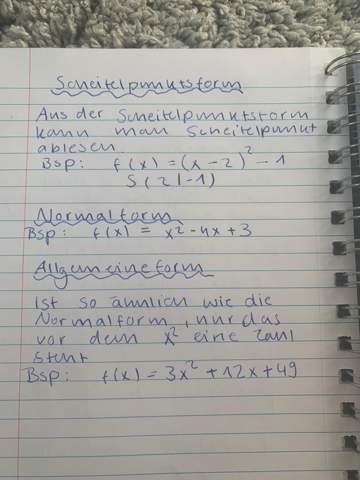 Scheitelpunktsform
Aus der Scheitelpunktsform
kann man Scheitelpunkt
ablesen
Bsp: f(x) = (x-2)² - 1
S(2|-1)
Normalform
Bsp: f(x) = x² - 4x + 3
Allgemeineform
Ist so ähnlich wie die
Normalform, nur das
vor dem x² eine Zahl
steht
Bsp: f(x) = 3x² + 12x + 49